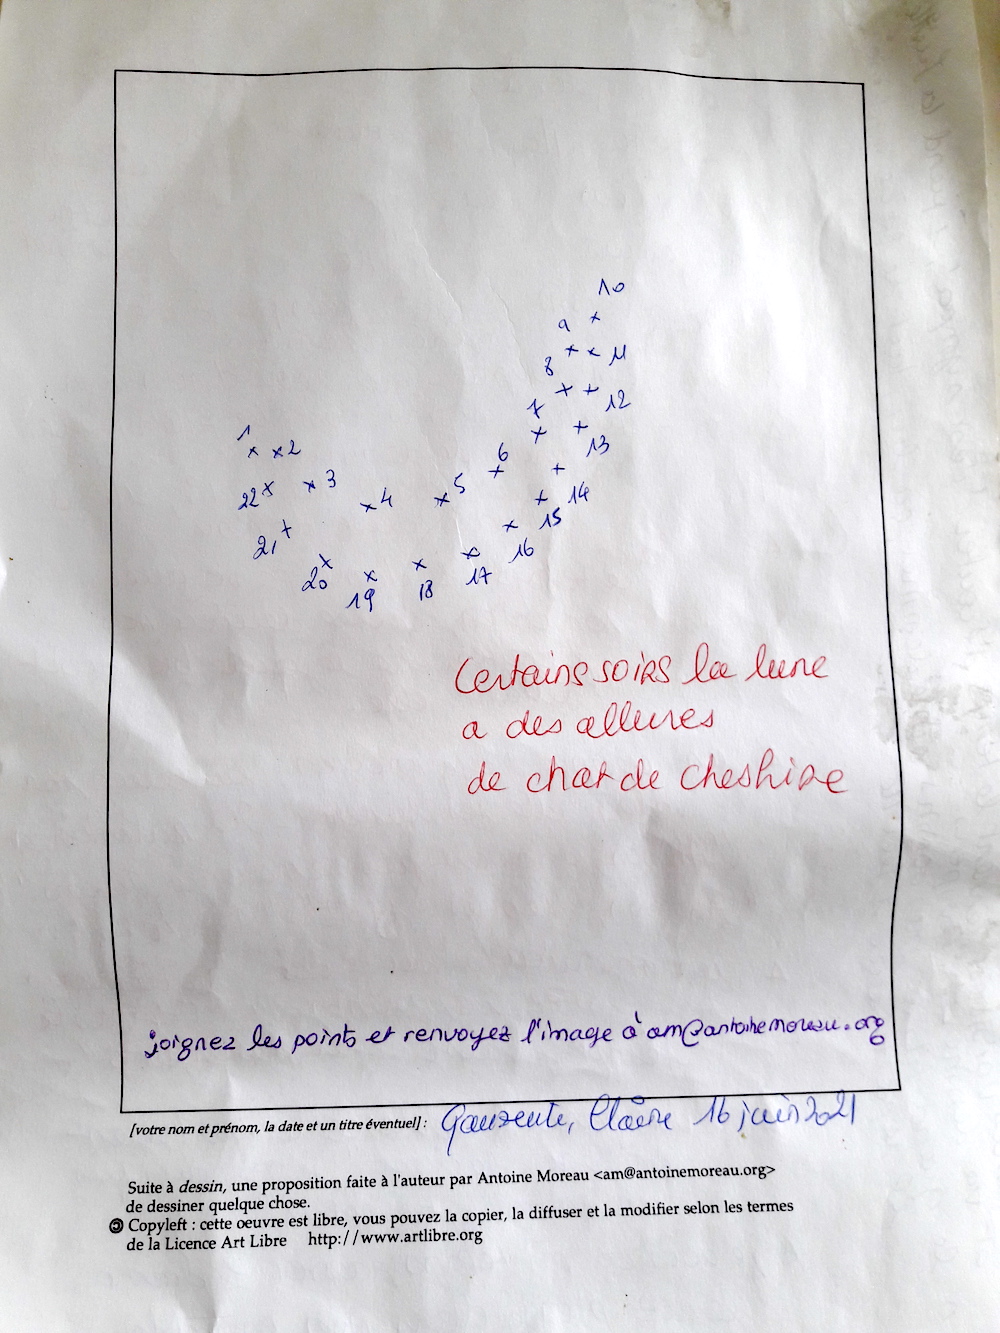 10
9
8 11
7 12
1 2 6 13
22 3 4 5 14
21 15
20 16
19 18 17
Certains soirs la lune
a des allures
de chat de Cheshire
joignez les points et renvoyez l'image à am@antoinemoreau.org
[votre nom et prénom, la date et un titre éventuel] : Gauzente, Claire 16 juin 2021
Suite à dessin, une proposition faite à l'auteur par Antoine Moreau <am@antoinemoreau.org>
de dessiner quelque chose.
Copyleft : cette oeuvre est libre, vous pouvez la copier, la diffuser et la modifier selon les termes
de la Licence Art Libre http://www.artlibre.org